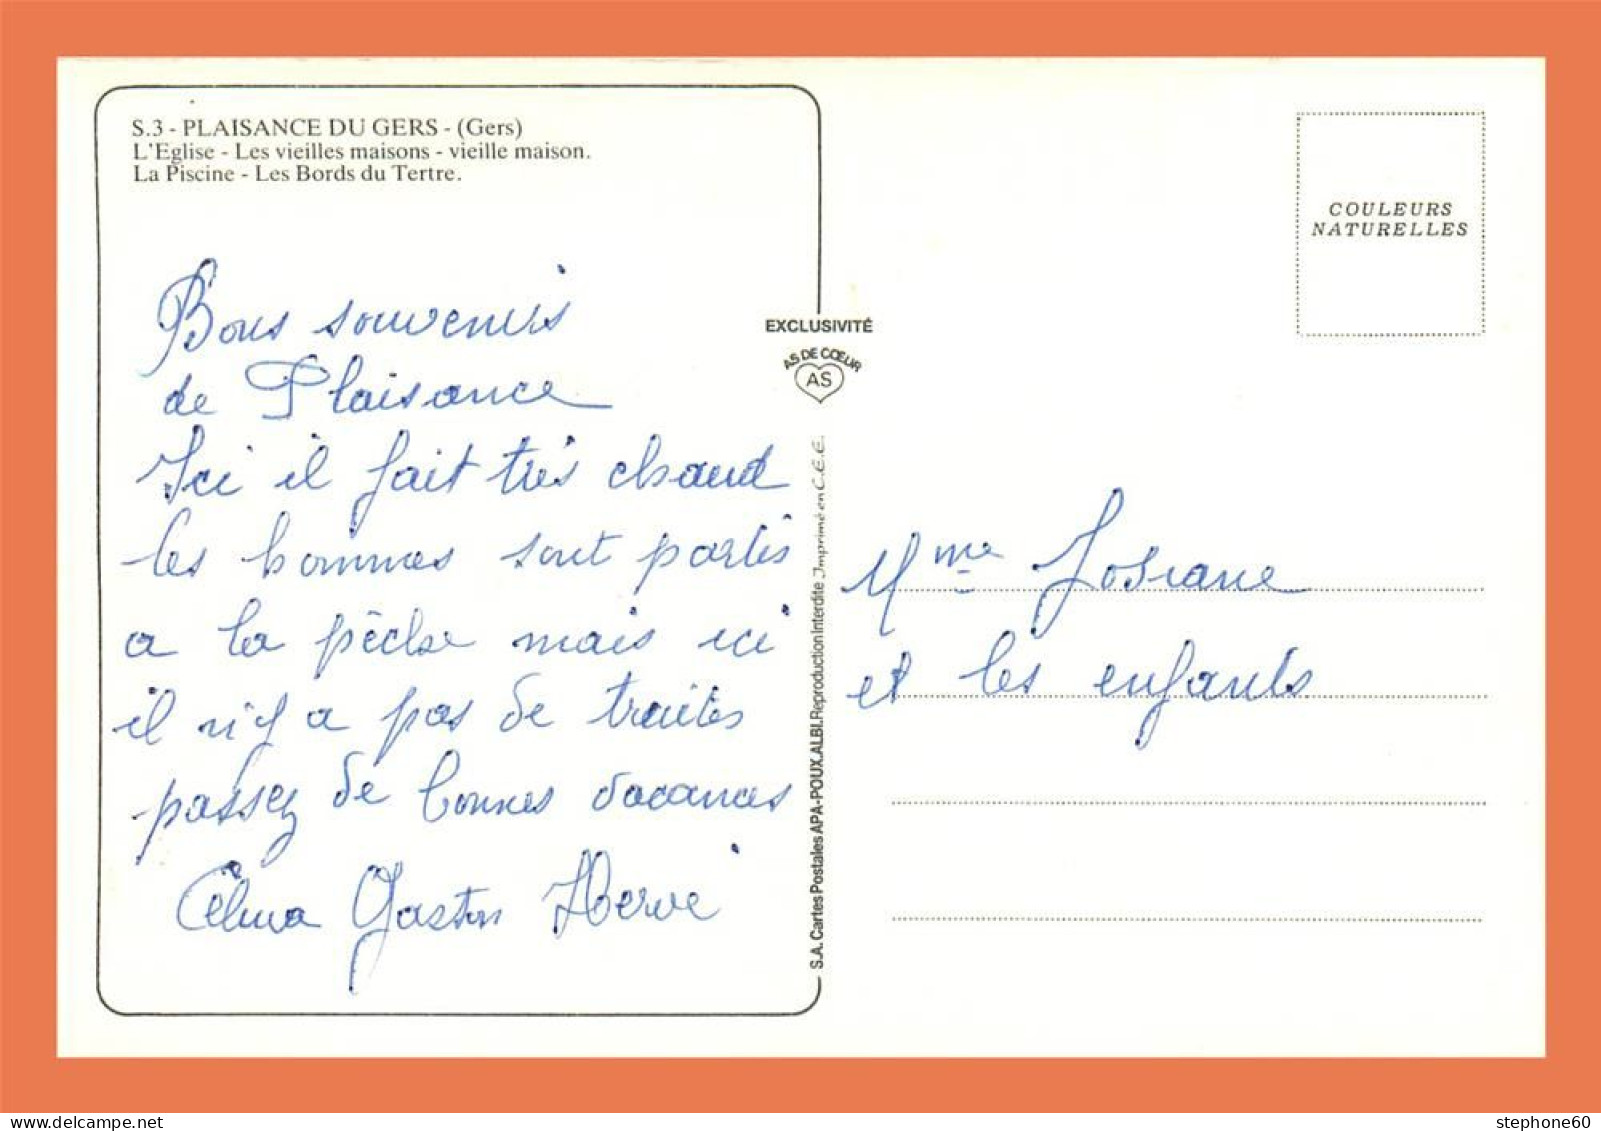 S.3 - PLAISANCE DU GERS - (Gers)
L'Eglise - Les vieilles maisons - vieille maison.
La Piscine - Les Bords du Tertre.
Bons souvenirs
de Plaisance
Ici il fait très chaud
les hommes sont partis
a la pêche mais ici
il n'y a pas de truites
passez de bonnes vacances
Gaston Hervé
EXCLUSIVITÉ
AS DE CŒUR
AS
S.A. Cartes Postales APA-POUX.ALBI.Reproduction Interdite Imprimé en C.E.E.
COULEURS
NATURELLES
Mme Josiane
et les enfants
delcampe.net
stephone60